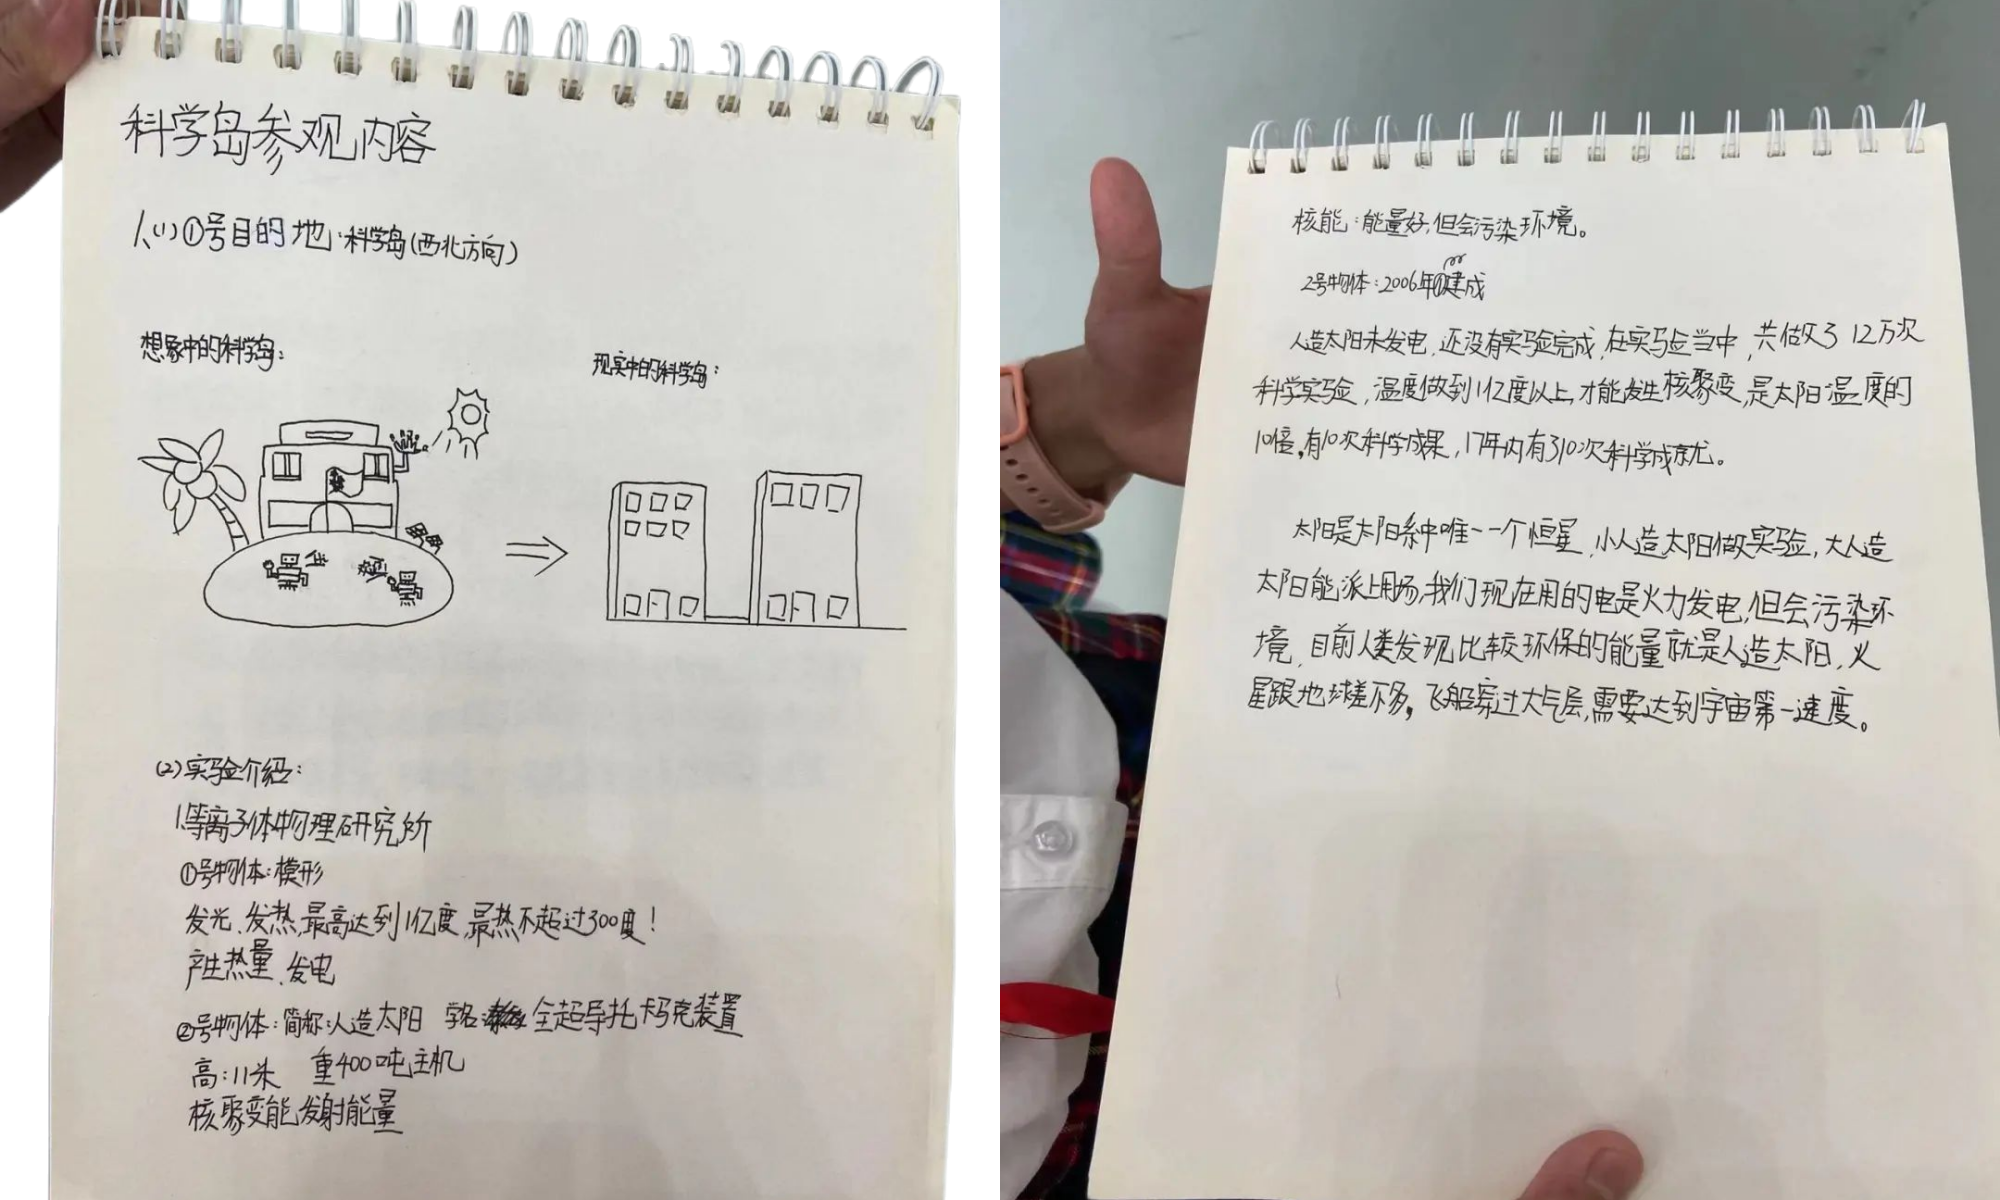 科学岛参观内容
1、(1)①号目的地：科学岛(西北方向)
想象中的科学岛：
现实中的科学岛：
(2)实验介绍：
1.等离子体物理研究所
①号物体：模形
发光、发热，最高达到1亿度，最热不超过300度！
产生热量、发电
②号物体：简称：人造太阳 学名 全超导托卡马克装置
高：11米 重400吨主机
核聚变能，发射能量
核能：能量好，但会污染环境。
2号物体：2006年建成
人造太阳未发电，还没有实验完成，在实验当中，共做了12万次
科学实验，温度做到1亿度以上，才能发生核聚变，是太阳温度的
10倍，有10次科学成果，17年内有310次科学成就。
太阳是太阳系中唯一一个恒星，小人造太阳做实验，大人造
太阳能派上用场，我们现在用的电是火力发电，但会污染环
境，目前人类发现比较环保的能量就是人造太阳，火
星跟地球差不多，飞船穿过大气层，需要达到宇宙第一速度。